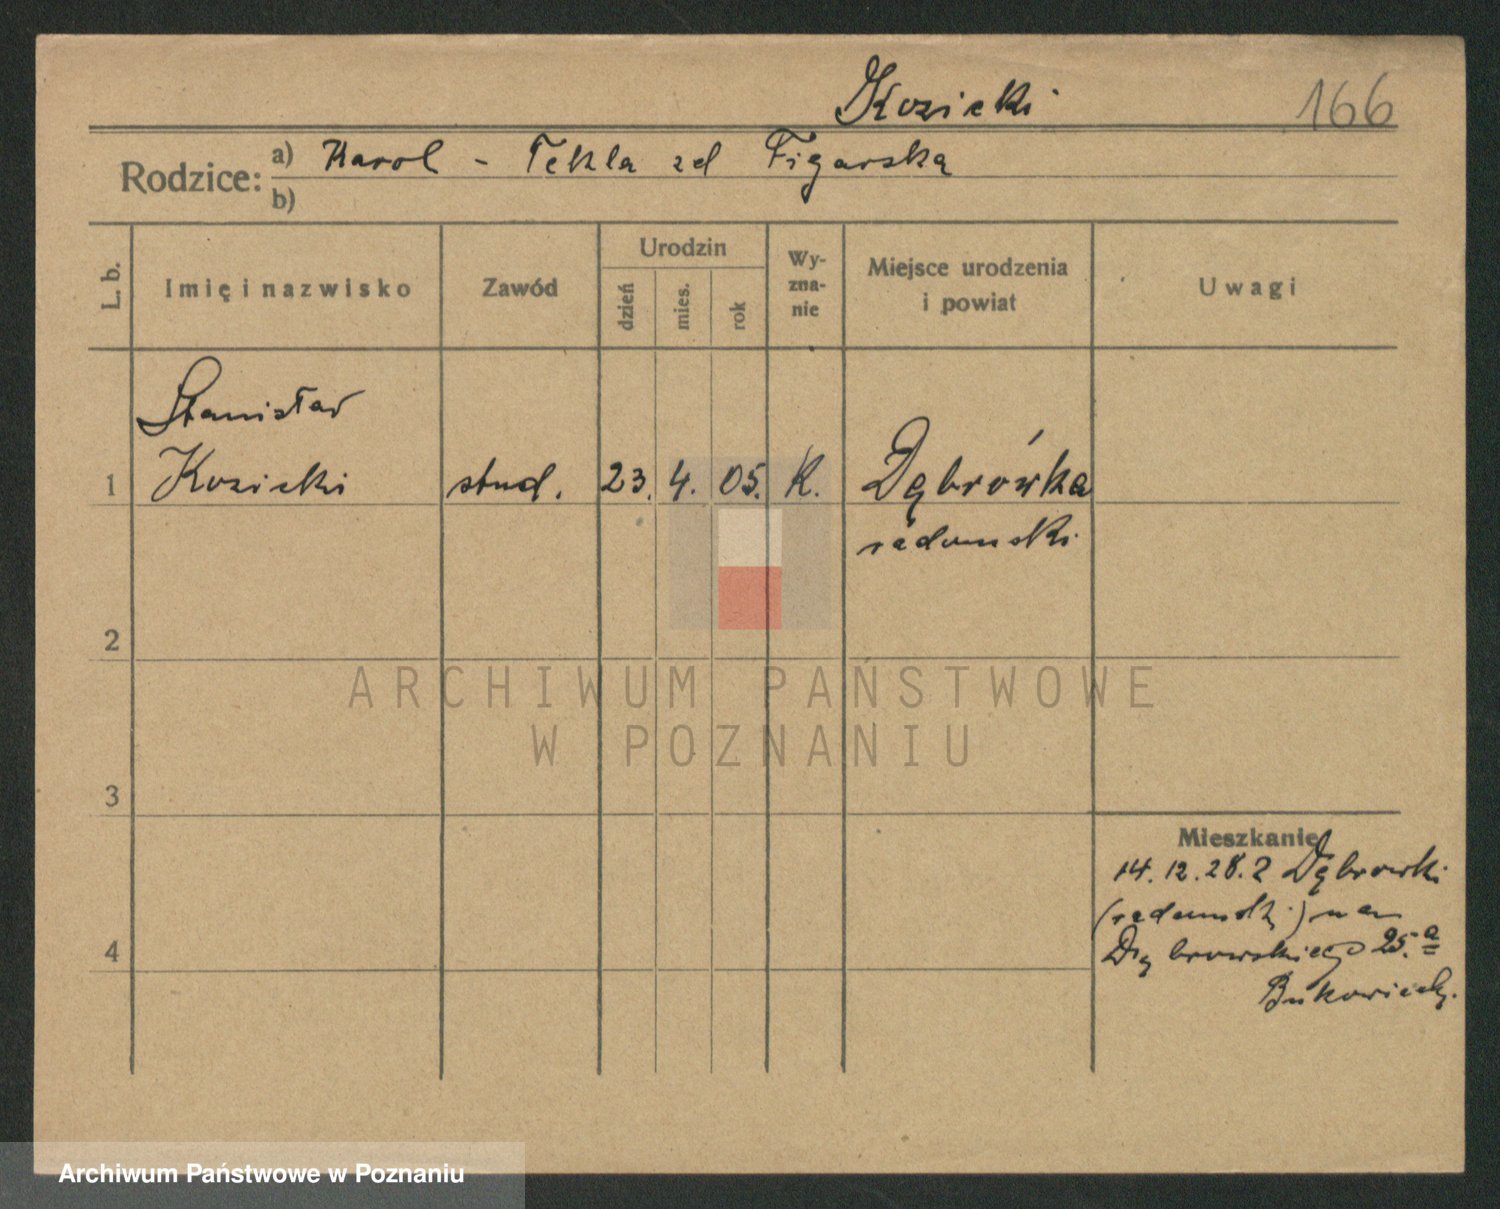 Kozicki
166
Rodzice: a) Karol - Tekla zd Figarska
b)
L. b.
Imię i nazwisko
Zawód
Urodzin
dzień
mies.
rok
Wy-
zna-
nie
Miejsce urodzenia
i powiat
Uwagi
Stanisław
1 Kozicki stud. 23. 4. 05. K. Dąbrówka
radomski
2
ARCHIWUM PAŃSTWOWE
W POZNANIU
3
Mieszkanie
14. 12. 28. z Dąbrowki
(radomski) na
4
Dąbrowskiego 25.a
Archiwum Państwowe w Poznaniu